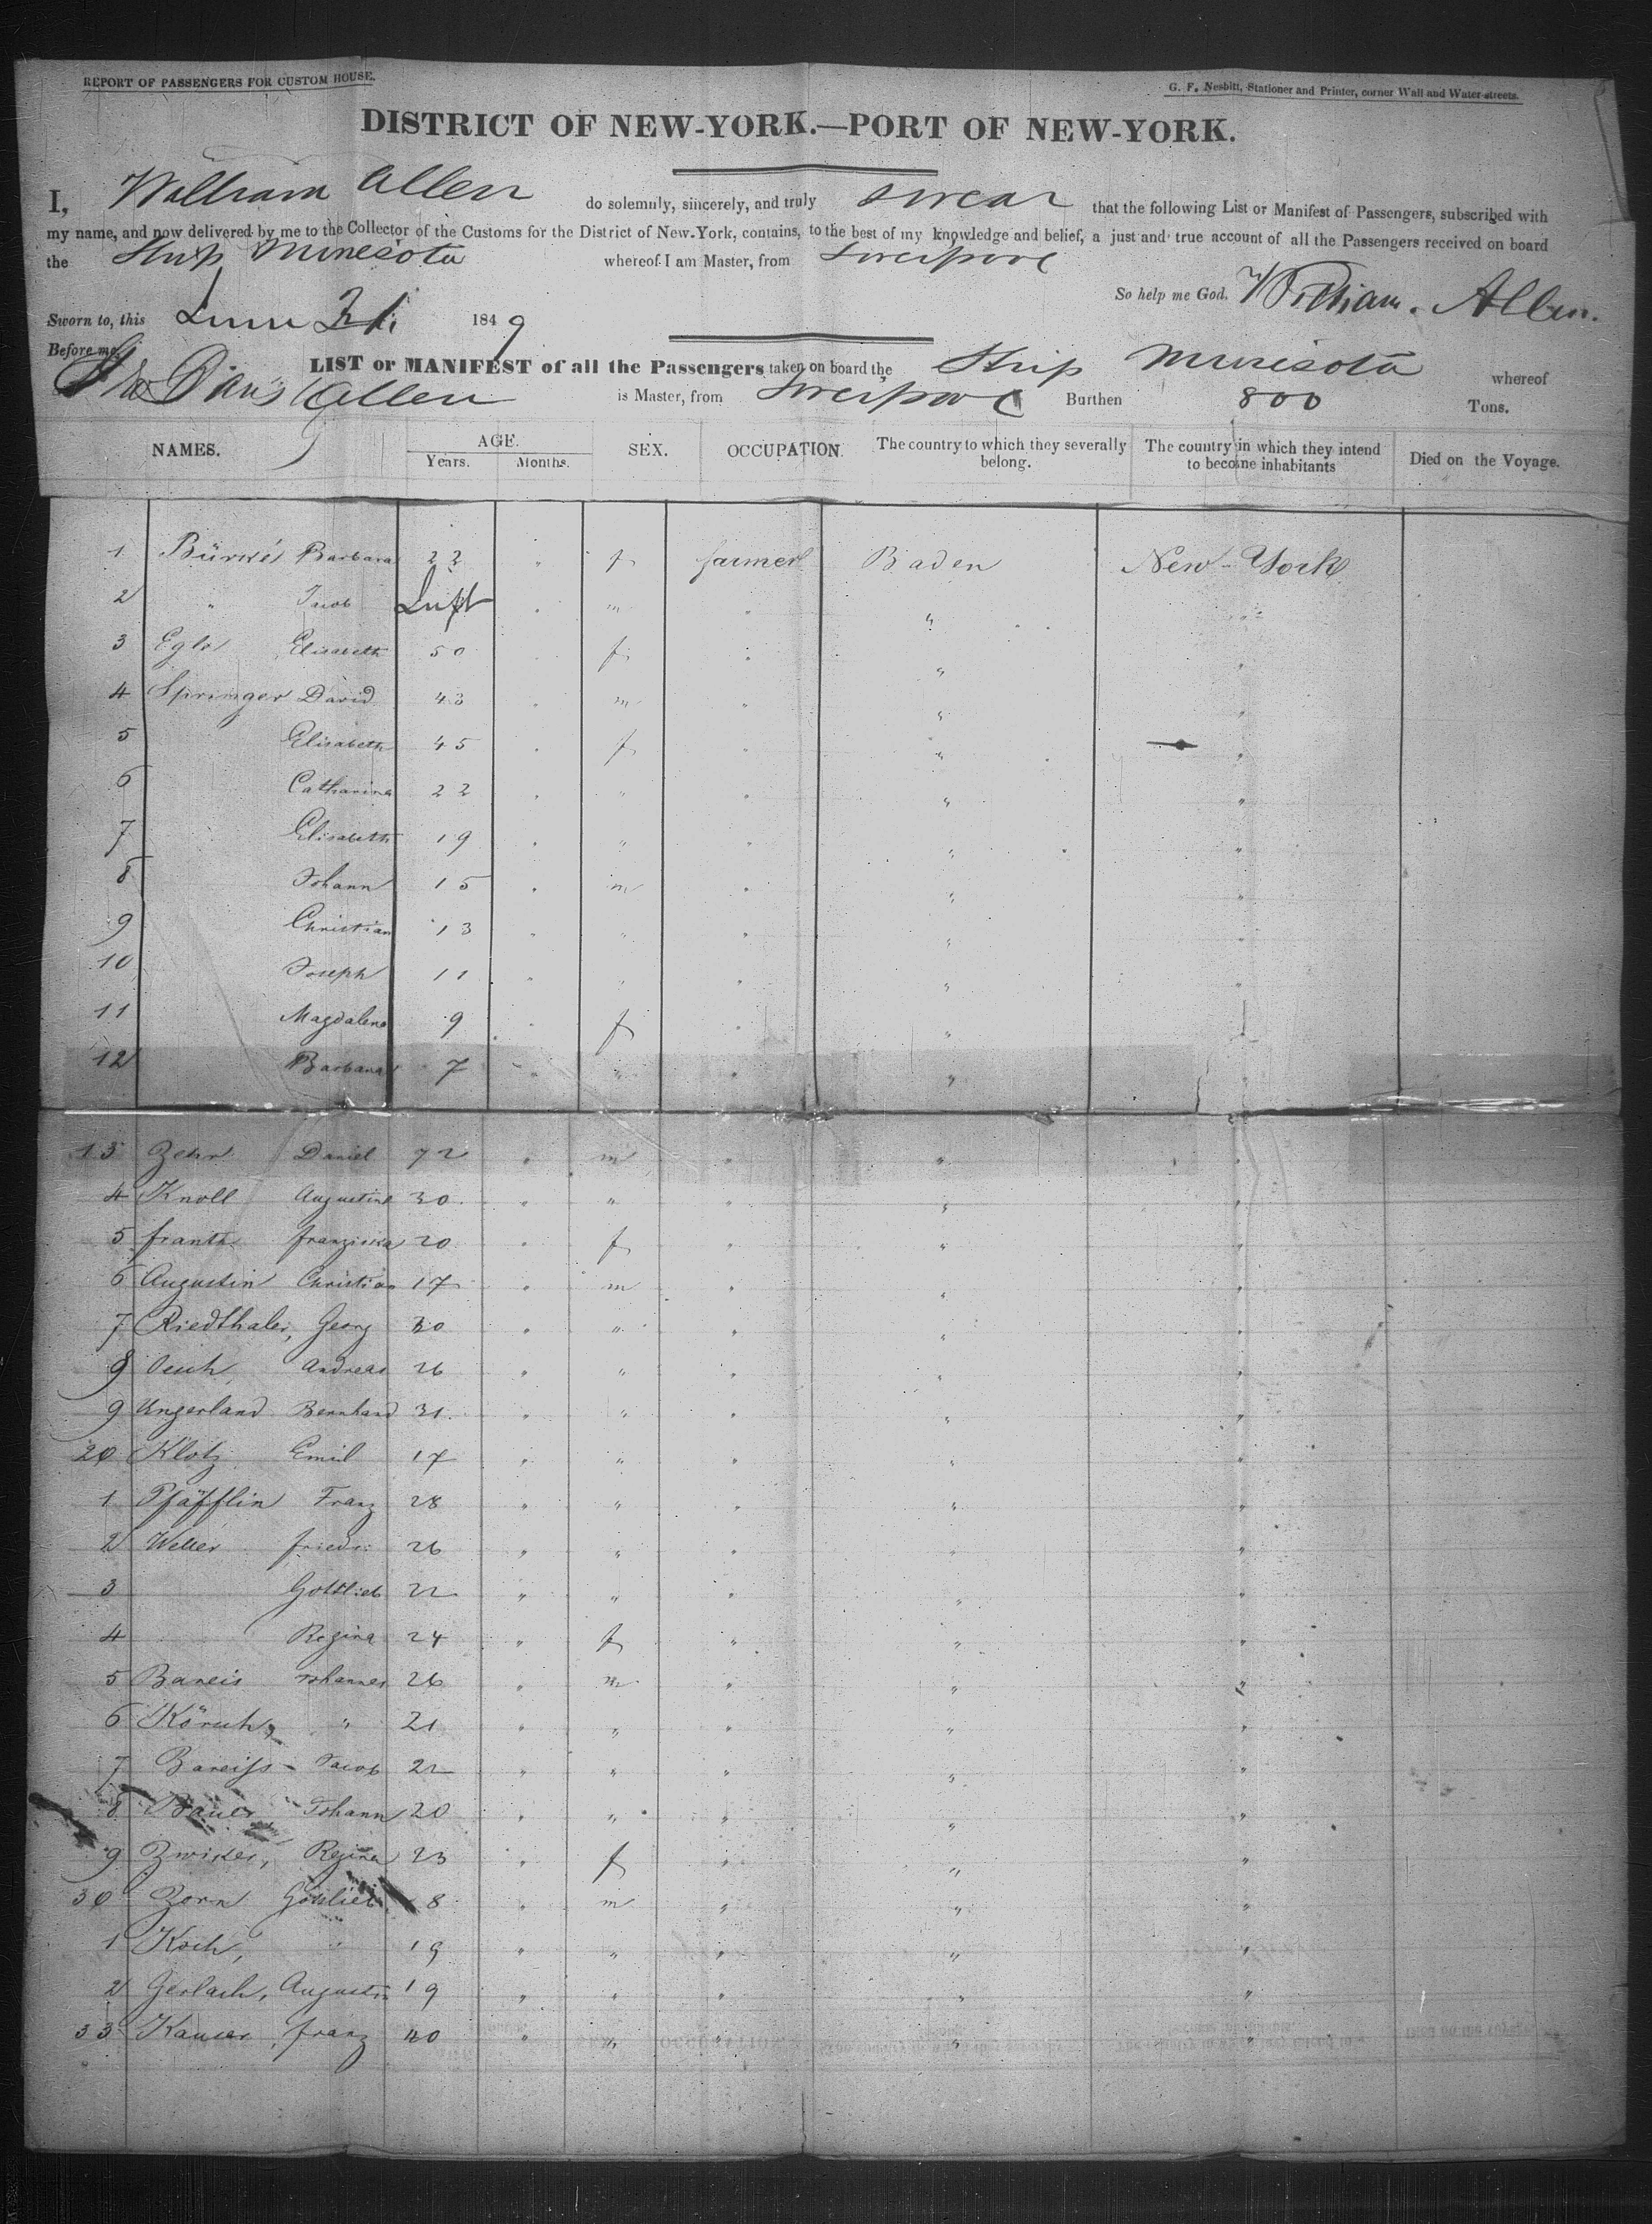 REPORT OF PASSENGERS FOR CUSTOM HOUSE.
G. F. Nesbitt, Stationer and Printer, corner Wall and Water-streets.
DISTRICT OF NEW-YORK.—PORT OF NEW-YORK.
I, William Allen do solemnly, sincerely, and truly swear that the following List or Manifest of Passengers, subscribed with
my name, and now delivered by me to the Collector of the Customs for the District of New-York, contains, to the best of my knowledge and belief, a just and true account of all the Passengers received on board
the Ship Minesota whereof I am Master, from Liverpool
So help me God. William. Allen.
Sworn to, this June 1849
Before me,
LIST or MANIFEST of all the Passengers taken on board the Ship Minesota whereof
Allen is Master, from Liverpool Burthen 800 Tons.
NAMES. AGE. SEX. OCCUPATION. The country to which they severally belong. The country in which they intend to become inhabitants Died on the Voyage.
Years. Months.
1 Barbara 22 " f farmer Baden New-York
2 " Jacob " m " " "
3 Elisabeth 50 " f " " "
4 Springer David 43 " m " " "
5 Elisabeth 45 " f " " "
6 Catharina 22 " " " " "
7 Elisabeth 19 " " " " "
8 Johann 15 " m " " "
9 Christian 13 " " " " "
10 Joseph 11 " " " " "
11 Magdalena 9 " f " " "
12 Barbara 7 " " " " "
13 Zehr Daniel 72 " m " " "
4 Knoll Augustine 30 " " " " "
5 Franziska 20 " f " " "
6 Augustin Christian 17 " m " " "
7 Riedthaler, Georg 30 " " " " "
8 Oesch, Andreas 26 " " " " "
9 Ungerland Bernhard 31 " " " " "
20 Klotz Emil 17 " " " " "
1 Pfäfflin Franz 28 " " " " "
2 Weller Friedr: 26 " " " " "
3 Gottlieb 22 " " " " "
4 Regina 24 " f " " "
5 Bareis Johannes 26 " m " " "
6 " 21 " " " " "
7 Bareiss Jacob 22 " " " " "
8 Bauer Johann 20 " " " " "
9 Zwiker, Regina 23 " f " " "
30 Zorn Gottlieb 8 " m " " "
1 Koch, " 19 " " " " "
2 Gerlach, Augustin 19 " " " " "
33 Franz " " " " "